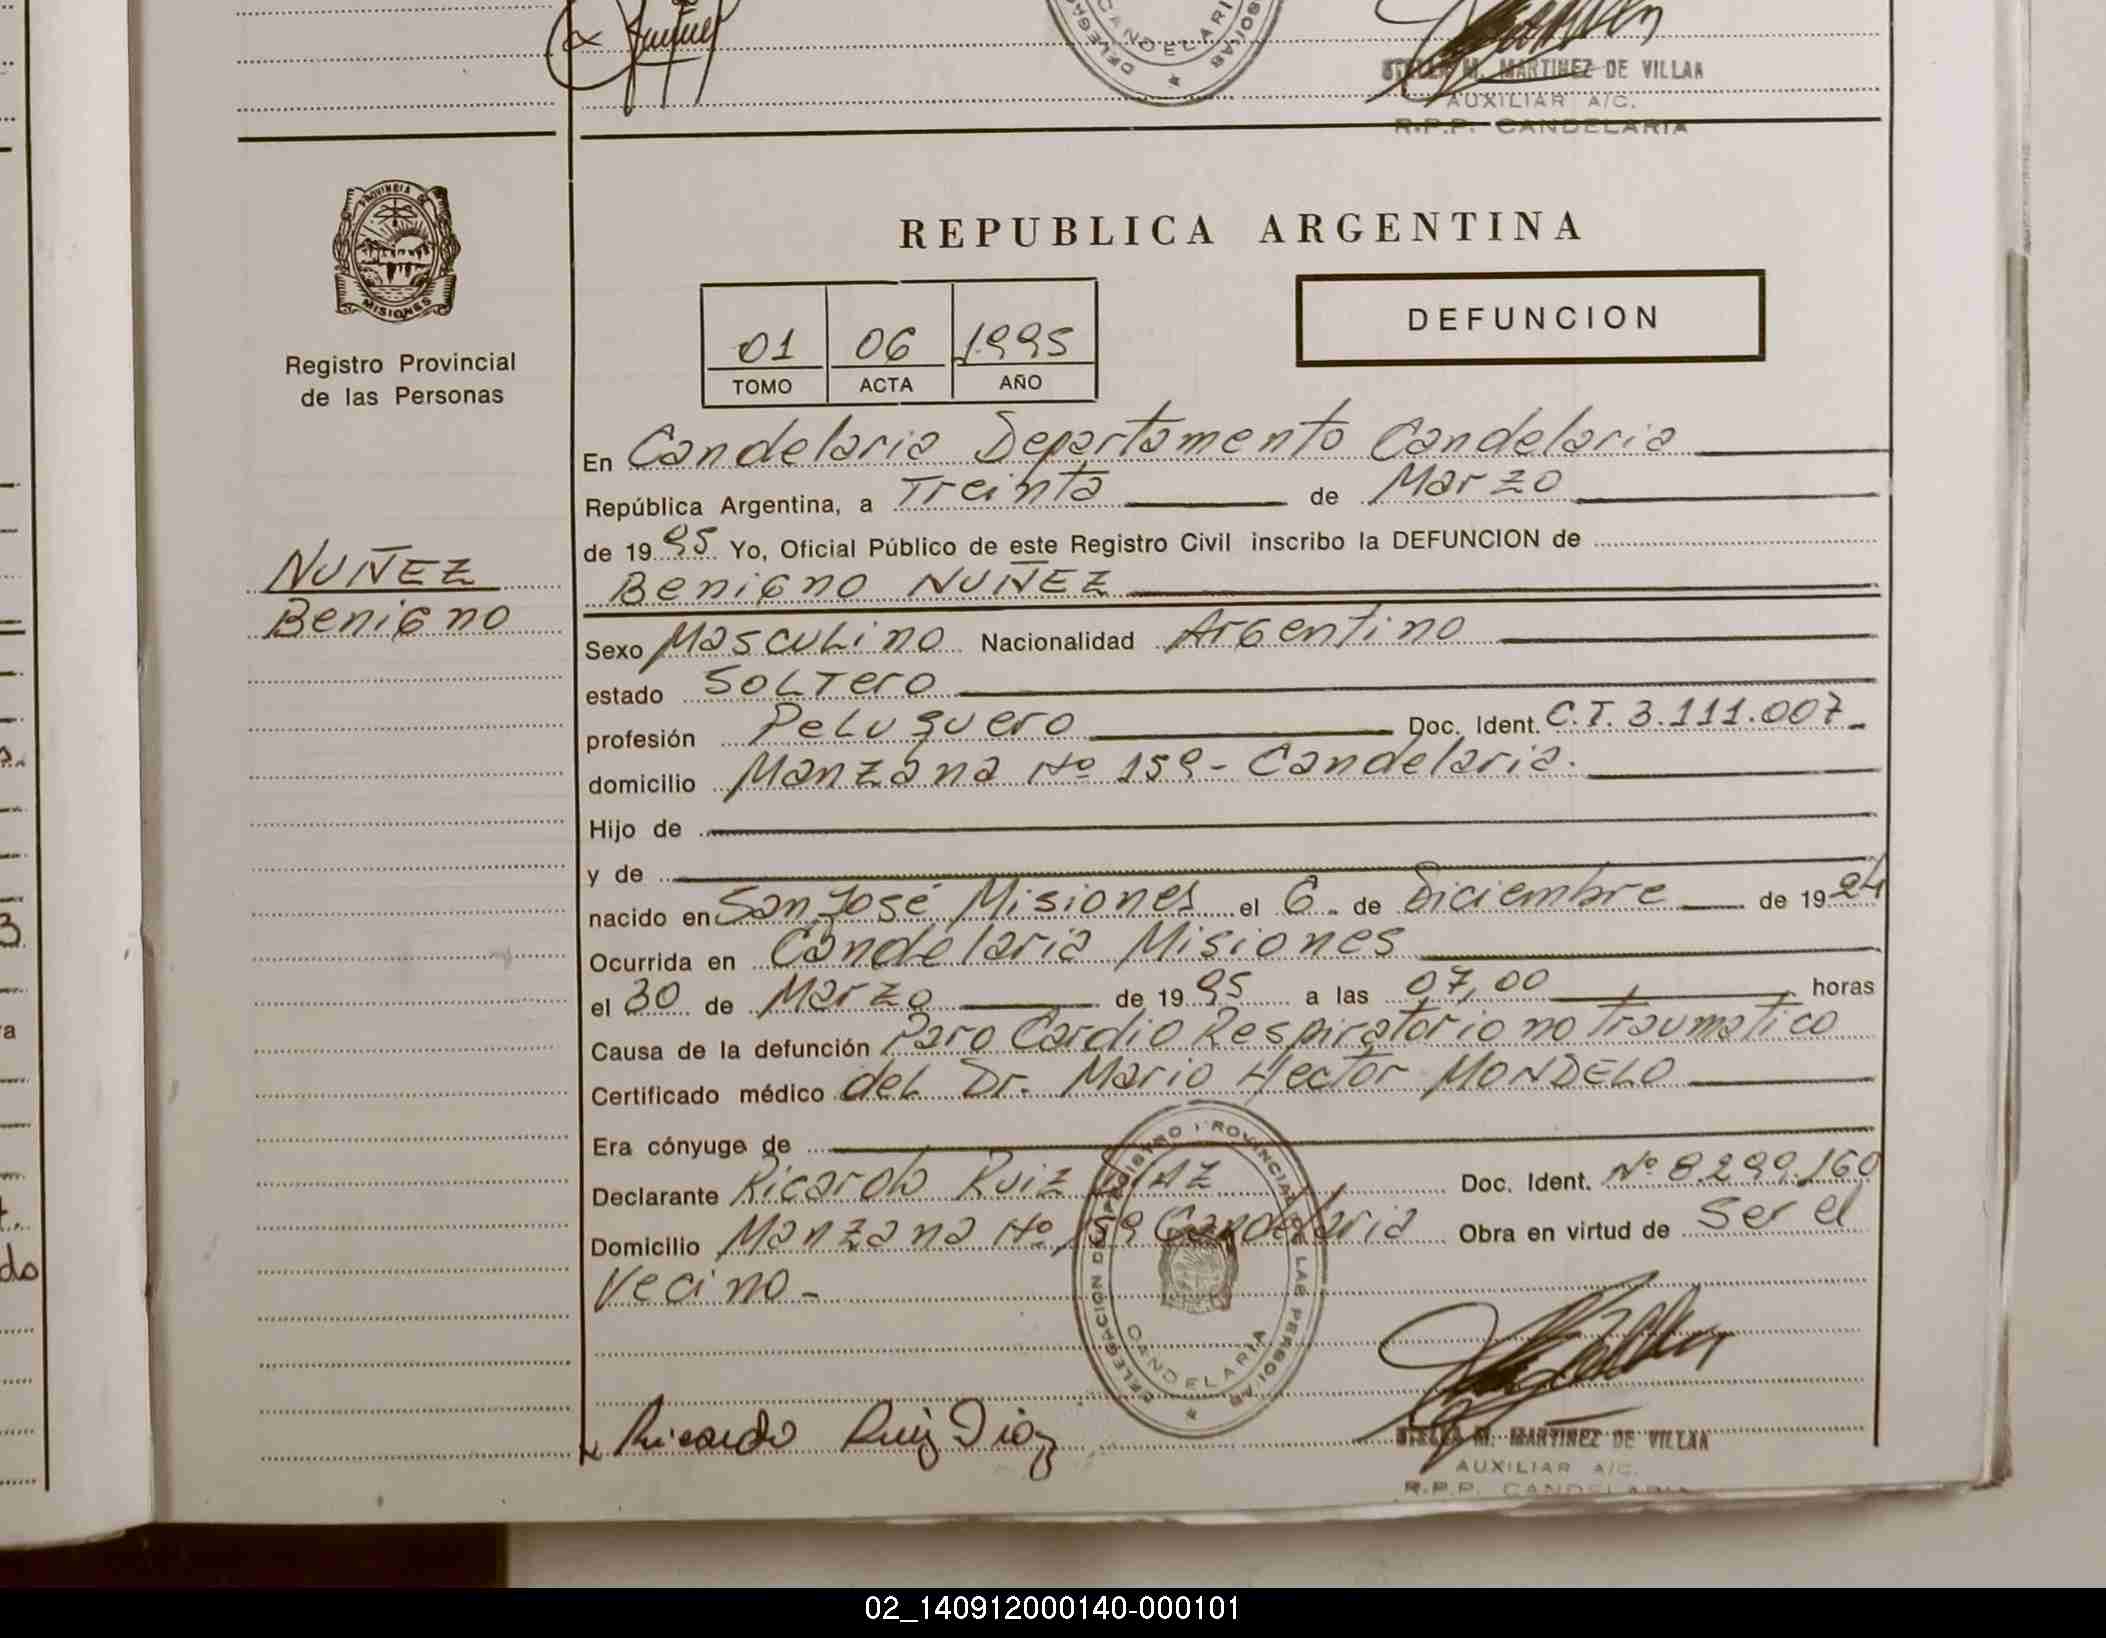 DELEGA
CANDELARI
STELLA M. MARTINEZ DE VILLAN
AUXILIAR A/C.
R.P.P. CANDELARIA
PROVINCIA DE
MISIONES
Registro Provincial
de las Personas
NUÑEZ
Benigno
REPUBLICA ARGENTINA
01 06 1995
TOMO ACTA AÑO
DEFUNCION
En Candelaria Departamento Candelaria
República Argentina, a Treinta de Marzo
de 1995 Yo, Oficial Público de este Registro Civil inscribo la DEFUNCION de
Benigno NUÑEZ
Sexo Masculino Nacionalidad Argentino
estado Soltero
profesión Peluquero Doc. Ident. C.I. 3.111.007
domicilio Manzana Nº 159 - Candelaria.
Hijo de
y de
nacido en San José Misiones el 6 de Diciembre de 1924
Ocurrida en Candelaria Misiones
el 30 de Marzo de 1995 a las 07,00 horas
Causa de la defunción Paro Cardio Respiratorio no traumatico
Certificado médico del Dr. Mario Hector MONDELO
Era cónyuge de
Declarante Ricardo Ruiz DIAZ Doc. Ident. Nº 8.299.160
Domicilio Manzana Nº 159 Candelaria Obra en virtud de Ser el
Vecino -
DELEGACION DEL REGISTRO PROVINCIAL DE LAS PERSONAS
CANDELARIA
x Ricardo Ruiz Diaz
STELLA M. MARTINEZ DE VILLAN
AUXILIAR A/C.
R.P.P. CANDELARIA
02_140912000140-000101